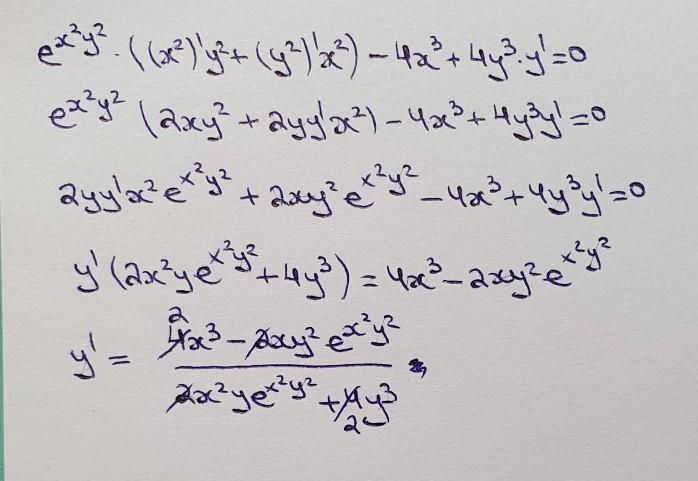 e^{x²y²} · ((x²)'y² + (y²)'x²) - 4x³ + 4y³·y' = 0
e^{x²y²} (2xy² + 2yy'x²) - 4x³ + 4y³y' = 0
2yy'x²e^{x²y²} + 2xy²e^{x²y²} - 4x³ + 4y³y' = 0
y'(2x²ye^{x²y²} + 4y³) = 4x³ - 2xy²e^{x²y²}
2
y' = 4x³ - 2xy² e^{x²y²}
2x²ye^{x²y²} + 4y³
2